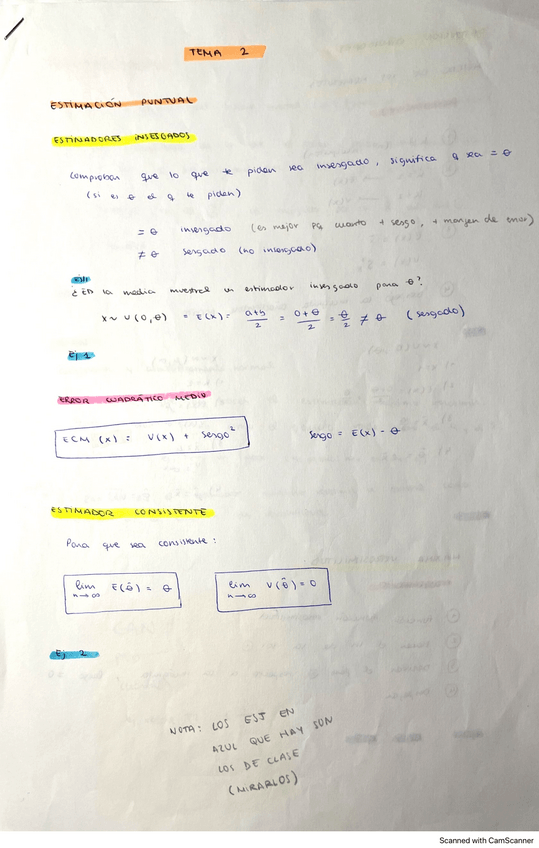 TEMA 2
ESTIMACIÓN PUNTUAL
ESTIMADORES INSESGADOS
Comprobar que lo que te piden sea insesgado, significa q sea = θ
(si es θ el q te piden)
= θ insesgado (es mejor pq cuanto + sesgo, + margen de error)
≠ θ sesgado (no insesgado)
¿Es la media muestral un estimador insesgado para θ?
X~U(0,θ) = E(x) = a+b/2 = 0+θ/2 = θ/2 ≠ θ (sesgado)
Ej 1
ERROR CUADRÁTICO MEDIO
ECM (x) = V(x) + sesgo² sesgo = E(x) - θ
ESTIMADOR CONSISTENTE
Para que sea consistente:
lim n→∞ E(θ̂) = θ lim n→∞ V(θ̂) = 0
Ej 2
NOTA: LOS EJ EN
AZUL QUE HAY SON
LOS DE CLASE
(MIRARLOS)
Scanned with CamScanner